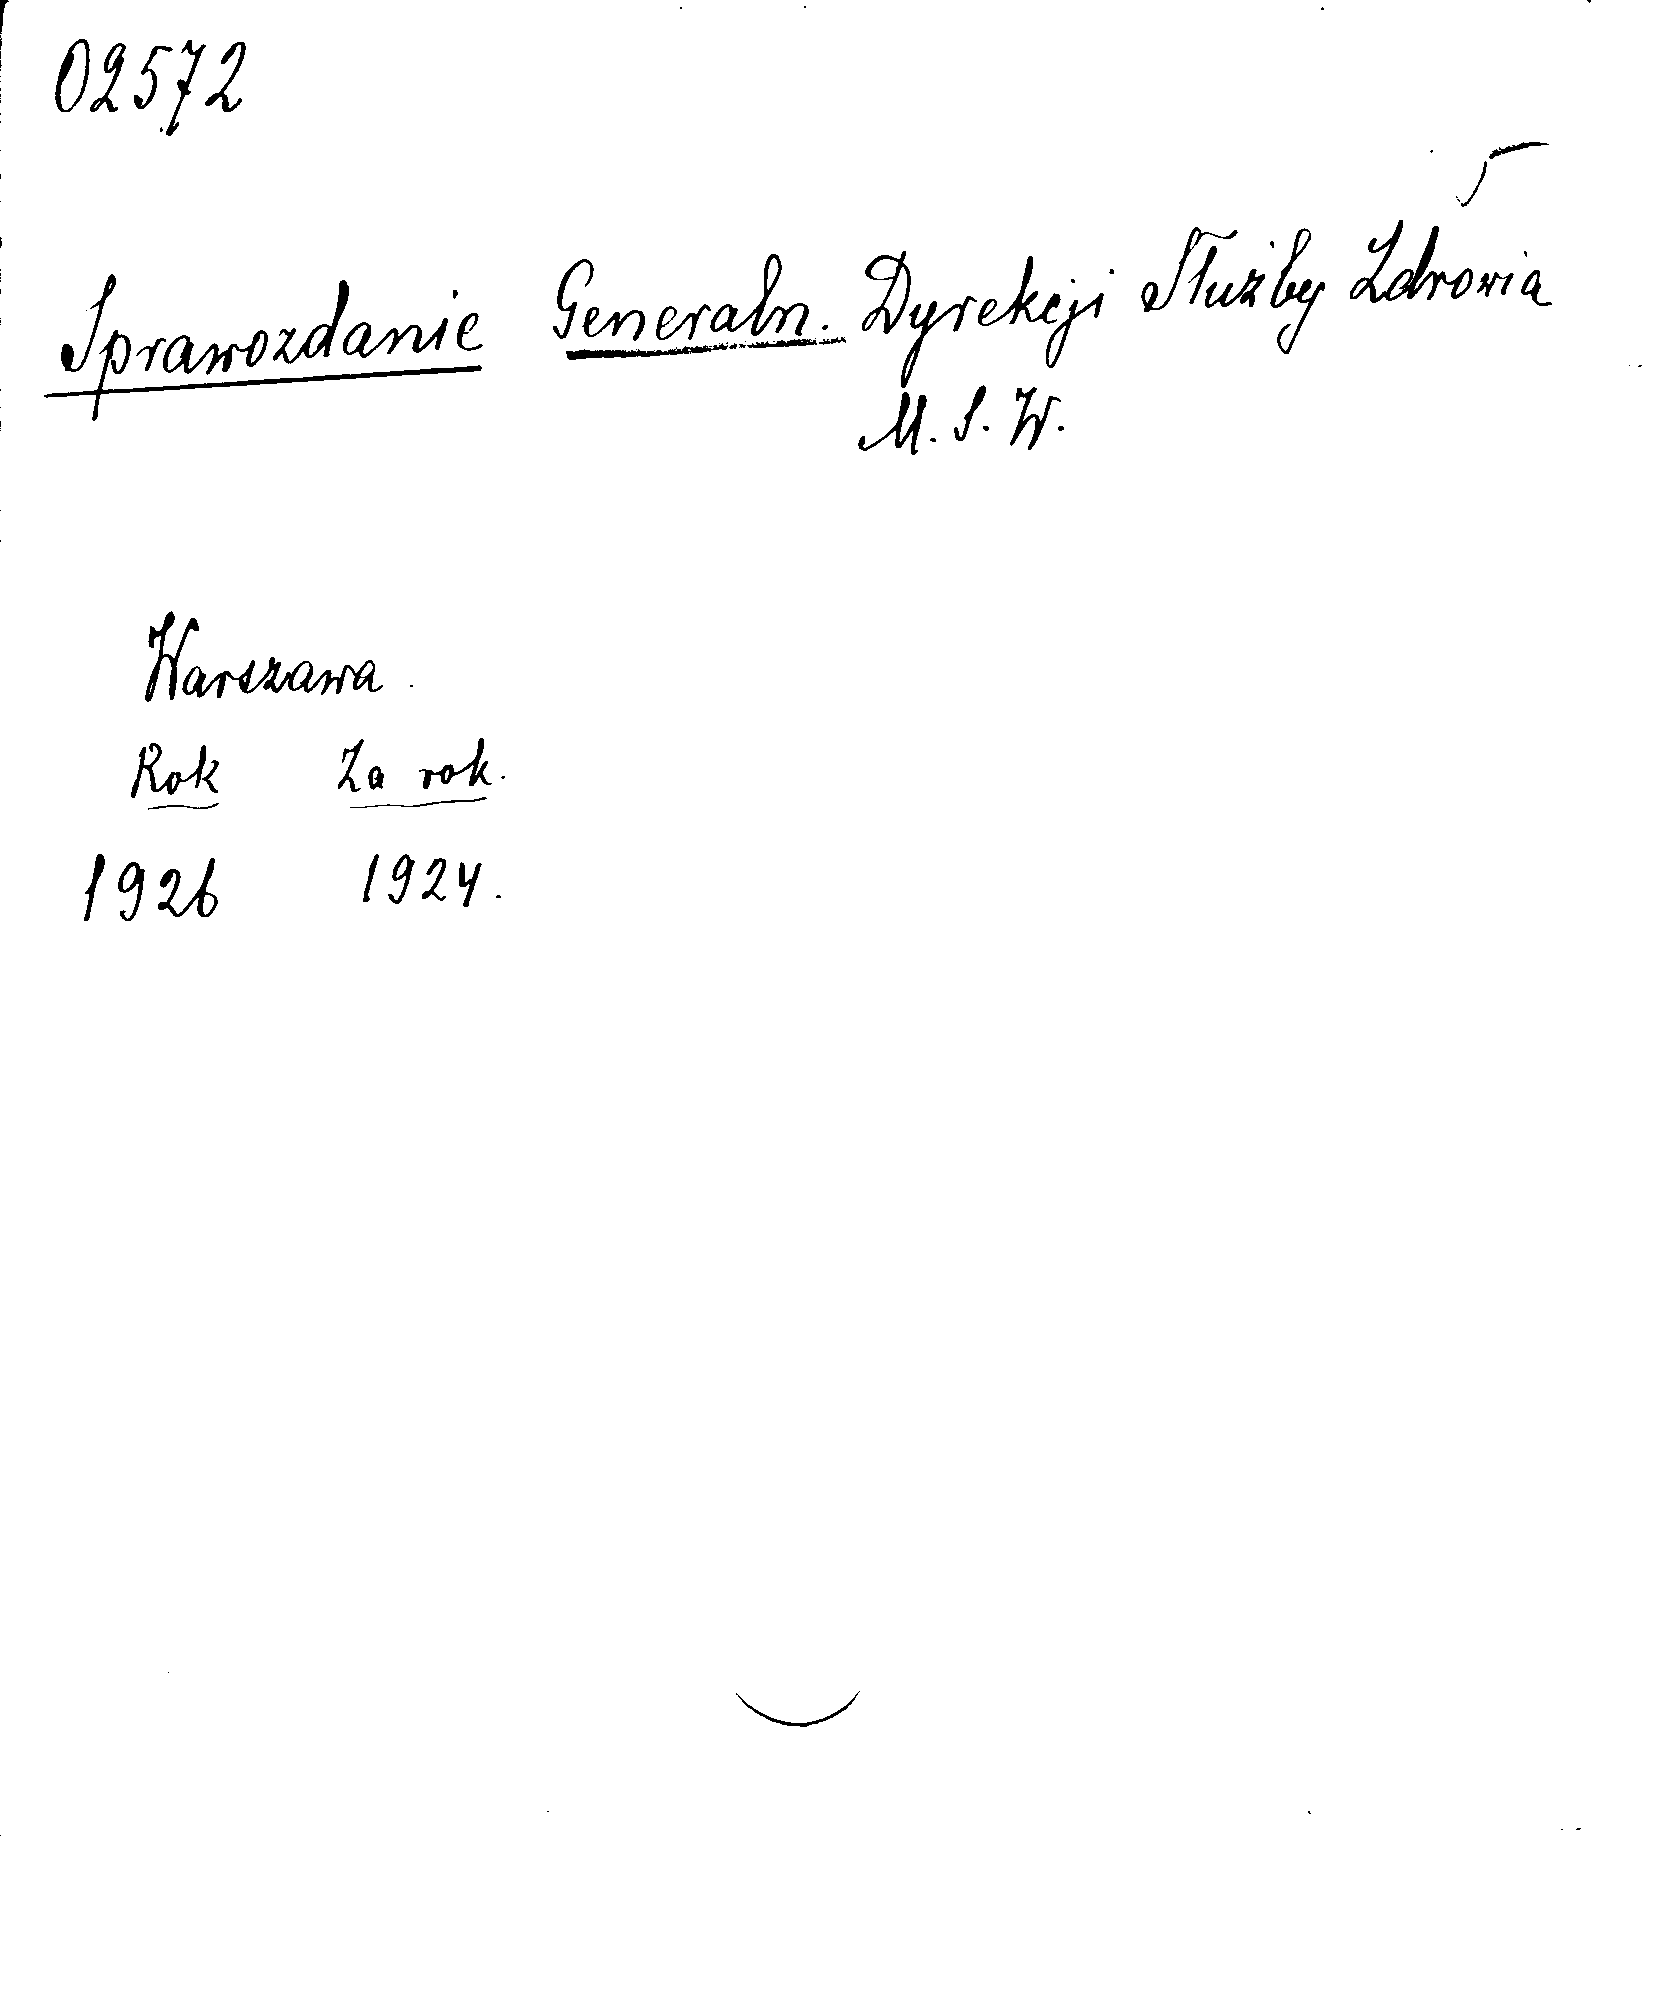 02572
Sprawozdanie Generaln. Dyrekcji Służby Zdrowia
M. S. W.
Warszawa.
Rok Za rok.
1926 1924.